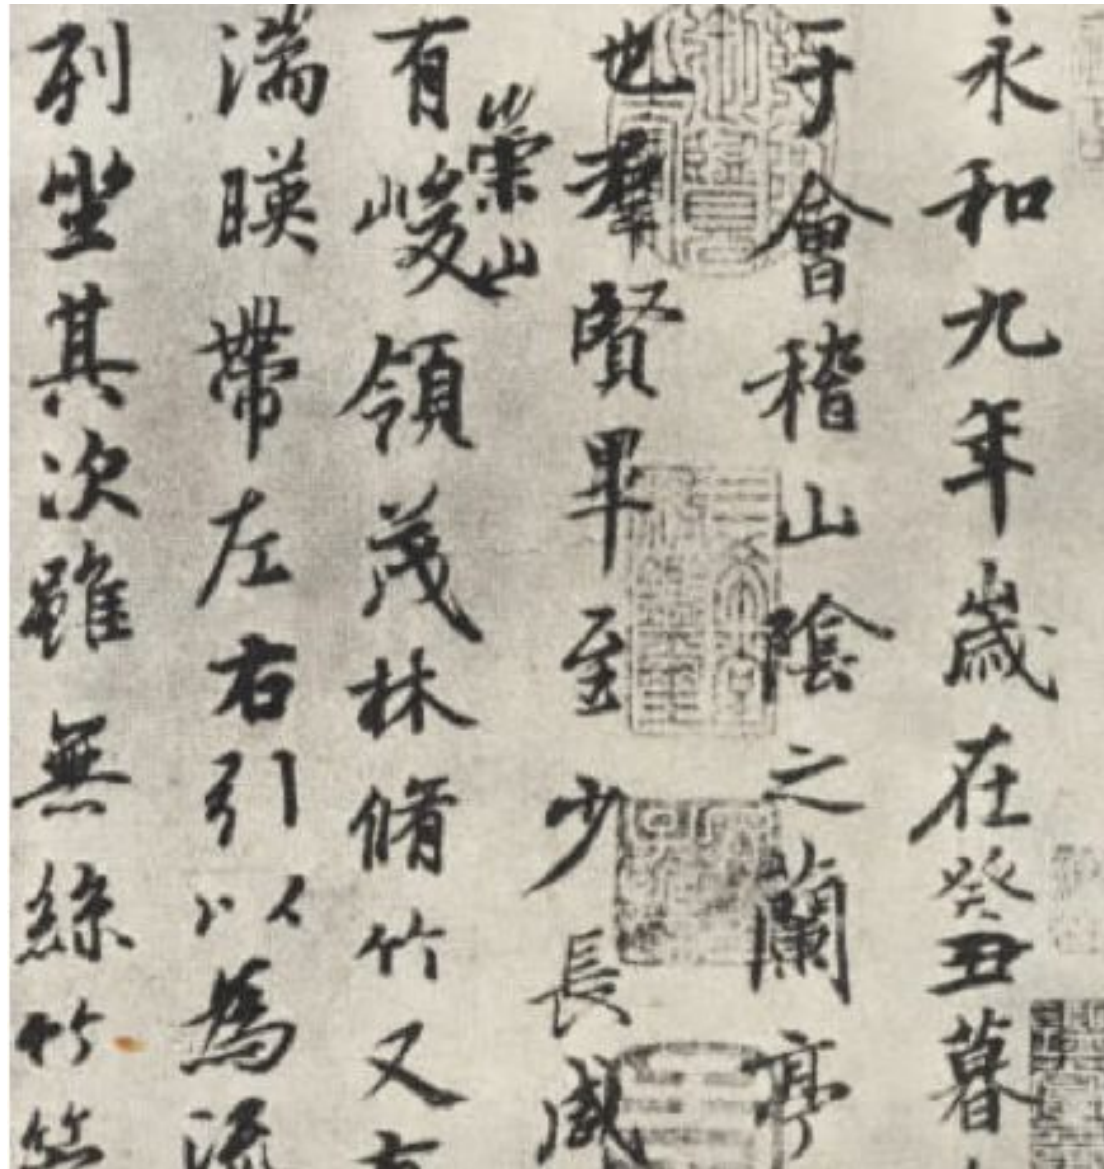 永和九年歲在癸丑暮
于會稽山陰之蘭亭
也羣賢畢至少長咸
有崇山峻領茂林脩竹又
湍暎帶左右引以為流
列坐其次雖無絲竹
三希堂精鑑璽